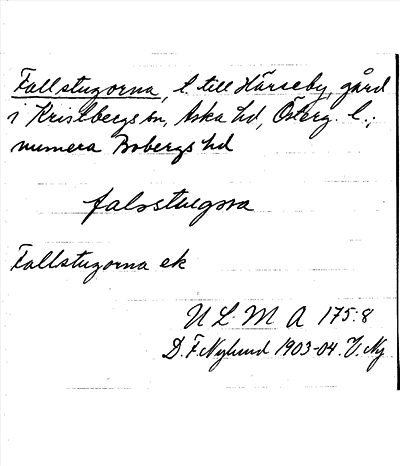 Fallstugorna, l. till Härseby, gård
i Kristbergs sn, Aska hd, Österg. l.;
numera Bobergs hd
falsstugora
Fallstugorna ek
U L M A 175:8
D. F. Nylund 1903-04. V. Ny